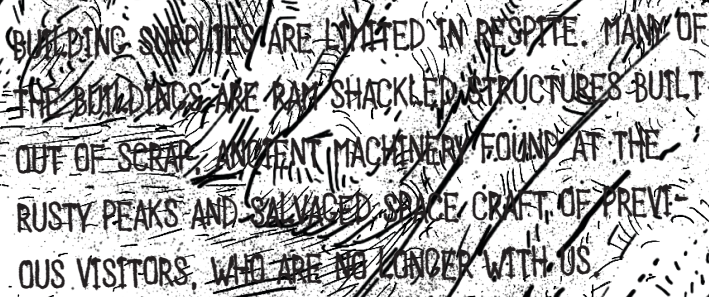 BUILDING SUPPLIES ARE LIMITED IN RESPITE. MANY OF
THE BUILDINGS ARE RAM SHACKLED STRUCTURES BUILT
OUT OF SCRAP, ANCIENT MACHINERY FOUND AT THE
RUSTY PEAKS AND SALVAGED SPACE CRAFT, OF PREVI-
OUS VISITORS, WHO ARE NO LONGER WITH US.